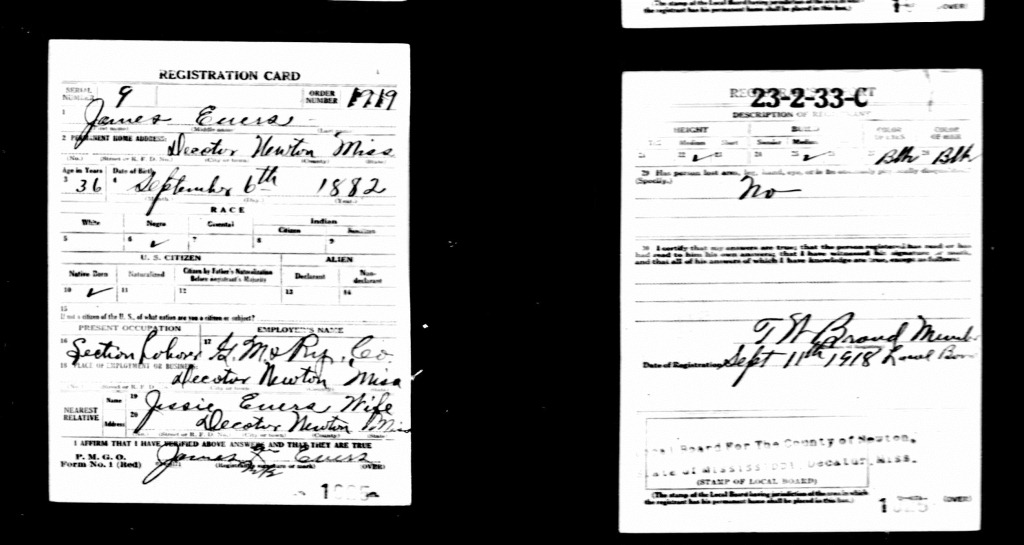 REGISTRATION CARD
SERIAL NUMBER 9 ORDER NUMBER 1719
1 James Evers
(First name) (Middle name) (Last name)
2 PERMANENT HOME ADDRESS:
Decator Newton Miss
(No.) (Street or R. F. D. No.) (City or town) (County) (State)
Age in Years Date of Birth
3 36 4 September 6th 1882
(Month) (Day) (Year)
RACE
White Negro Oriental Indian
Citizen
5 6 ✓ 7 8 9
U. S. CITIZEN ALIEN
Native Born Naturalized Citizen by Father's Naturalization Before registrant's Majority Declarant Non-declarant
10 ✓ 11 12 13 14
15
If not a citizen of the U. S., of what nation are you a citizen or subject?
PRESENT OCCUPATION EMPLOYER'S NAME
16 Section Labor 17 G. M & Ry. Co.
18 PLACE OF EMPLOYMENT OR BUSINESS:
Decator Newton Miss
(No.) (Street or R. F. D. No.) (City or town) (County) (State)
NEAREST RELATIVE
Name 19 Jessie Evers Wife
Address 20 Decator Newton Miss
(No.) (Street or R. F. D. No.) (City or town) (County) (State)
I AFFIRM THAT I HAVE VERIFIED ABOVE ANSWERS AND THAT THEY ARE TRUE
P. M. G. O.
Form No. 1 (Red) James Evers
(Registrant's signature or mark) (OVER)
the registrant has his permanent home shall be placed in this box.) (OVER)
23-2-33-C
DESCRIPTION OF REGISTRANT
HEIGHT BUILD COLOR OF EYES COLOR OF HAIR
Medium Short Slender Medium
21 22 ✓ 23 24 25 ✓ 26 27 Blk 28 Blk
29 Has person lost arm, leg, hand, eye, or is he obviously physically disqualified?
(Specify.)
No
30 I certify that my answers are true; that the person registered has read or has
had read to him his own answers; that I have witnessed his signature or mark,
and that all of his answers of which I have knowledge are true, except as follows:
T W Brand Member
Date of Registration Sept 11th 1918 Local Board
Local Board For The County of Newton,
State of Mississippi, Decatur, Miss.
(STAMP OF LOCAL BOARD)
(The stamp of the Local Board having jurisdiction of the area in which
the registrant has his permanent home shall be placed in this box.) (OVER)